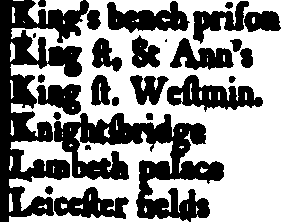 King's bench priſon
King ſt, St Ann's
King ſt. Weſtmin.
Knightſbridge
Lambeth palace
Leiceſter fields